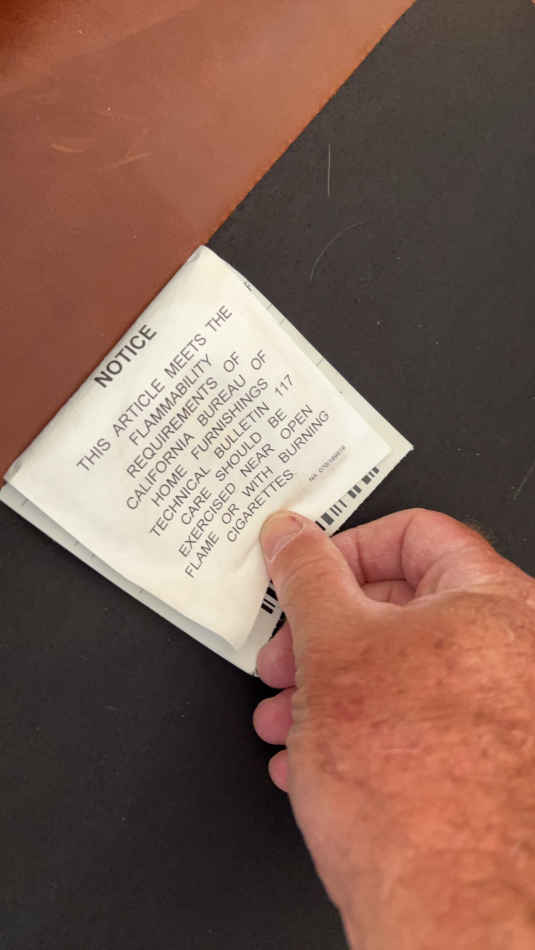 NOTICE
THIS ARTICLE MEETS THE
FLAMMABILITY
REQUIREMENTS OF
CALIFORNIA BUREAU OF
HOME FURNISHINGS
TECHNICAL BULLETIN 117
CARE SHOULD BE
EXERCISED NEAR OPEN
FLAME OR WITH BURNING
CIGARETTES